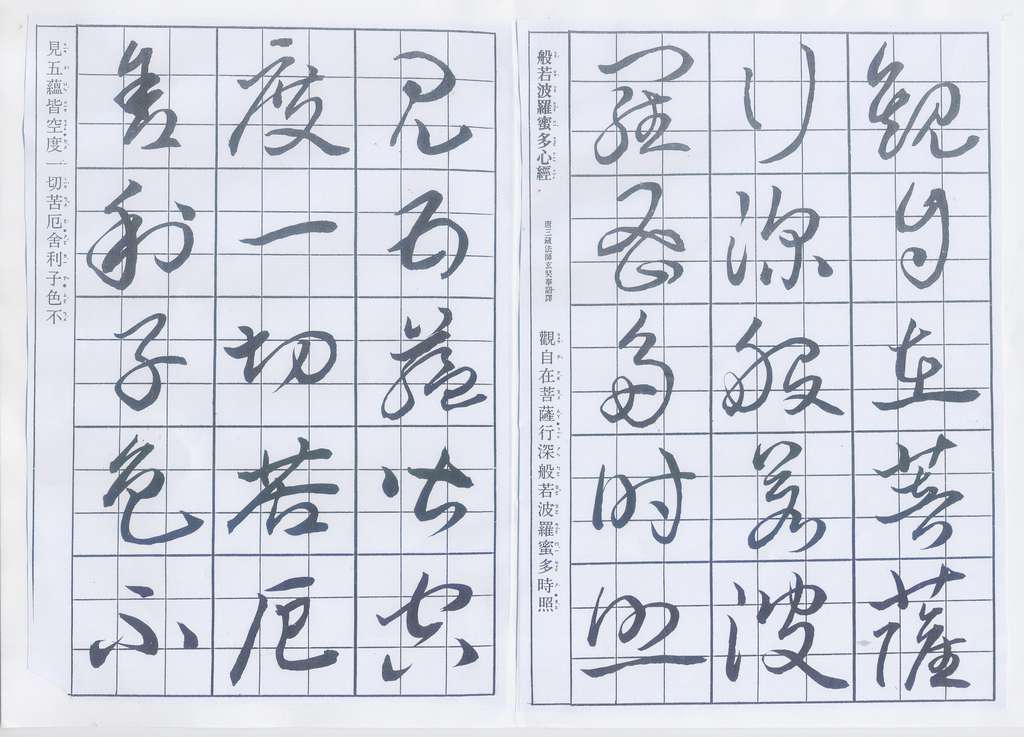 般若波羅蜜多心經
唐三蔵法師玄奘奉詔譯
觀自在菩薩行深般若波羅蜜多時照
觀自在菩薩
行深般若波
羅蜜多時照
見五蘊皆空
度一切苦厄
舍利子色不
見五蘊皆空度一切苦厄舍利子色不